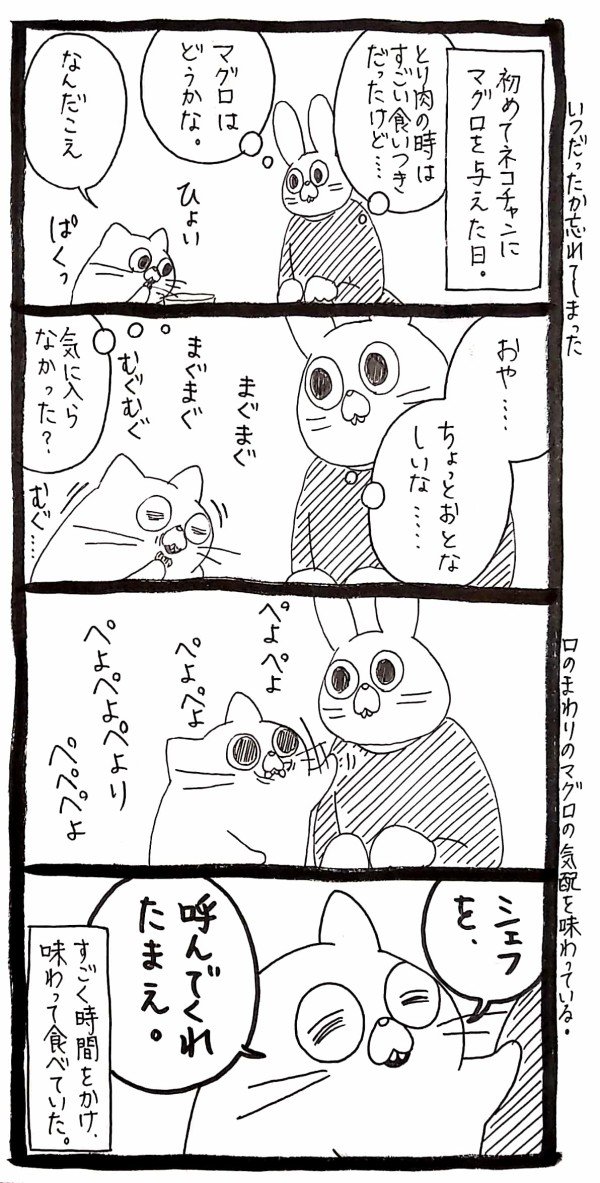 いつだったか忘れてしまった
初めてネコチャンに
マグロを与えた日。
とり肉の時は
すごい食いつき
だったけど……
マグロは
どうかな。
ひょい
なんだこえ
ぱくっ
おや……
ちょっとおとな
しいな……
まぐまぐ
まぐまぐ
むぐむぐ
気に入ら
なかった？
むぐ……
口のまわりのマグロの気配を味わっている。
ぺよぺよ
ぺよぺよ
ぺよぺよぺより
ペペペよ
シェフ
を、
呼んでくれ
たまえ。
すごく時間をかけ、
味わって食べていた。